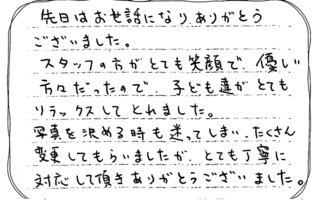 先日はお世話になり、ありがとう
ございました。
スタッフの方がとても笑顔で、優しい
方々だったので、子ども達がとても
リラックスしてとれました。
写真を決める時も迷ってしまい、たくさん
変更してもらいましたが、とても丁寧に
対応して頂きありがとうございました。